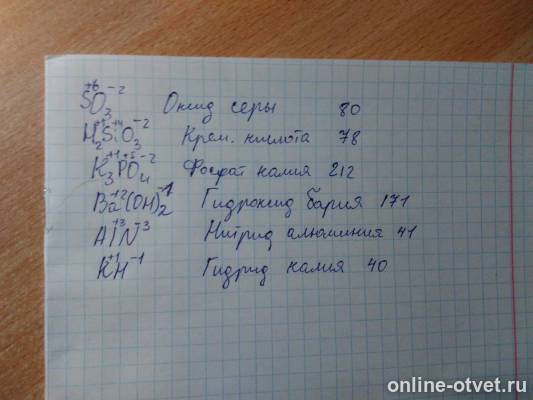 S⁺⁶O₃⁻² Оксид серы 80
H₂⁺¹Si⁺⁴O₃⁻² Крем. кислота 78
K₃⁺¹P⁺⁵O₄⁻² Фосфат калия 212
Ba⁺²(OH)₂⁻¹ Гидроксид бария 171
Al⁺³N⁻³ Нитрид алюминия 41
K⁺¹H⁻¹ Гидрид калия 40
online-otvet.ru